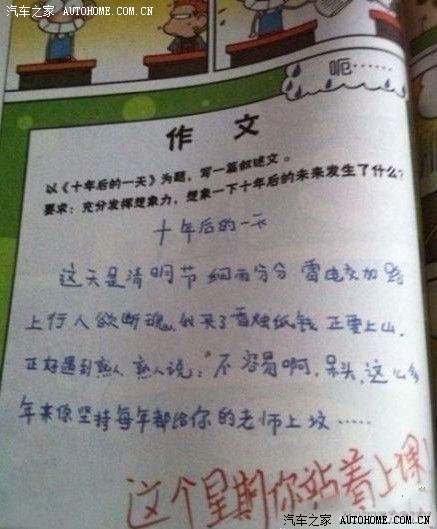 汽车之家 AUTOHOME.COM.CN
汽车之家 AUTOHOME.COM.CN
呃……
作 文
以《十年后的一天》为题，写一篇叙述文。
要求：充分发挥想象力，想象一下十年后的未来发生了什么？
十年后的一天
这天是清明节 细雨分分 雷电交加 路
上行人欲断魂，我买了香烛纸钱 正要上山，
正好遇到熟人，熟人说："不容易啊，呆头，这么多
年来你坚持每年都给你的老师上坟……
这个星期你站着上课！
汽车之家 AUTOHOME.COM.CN